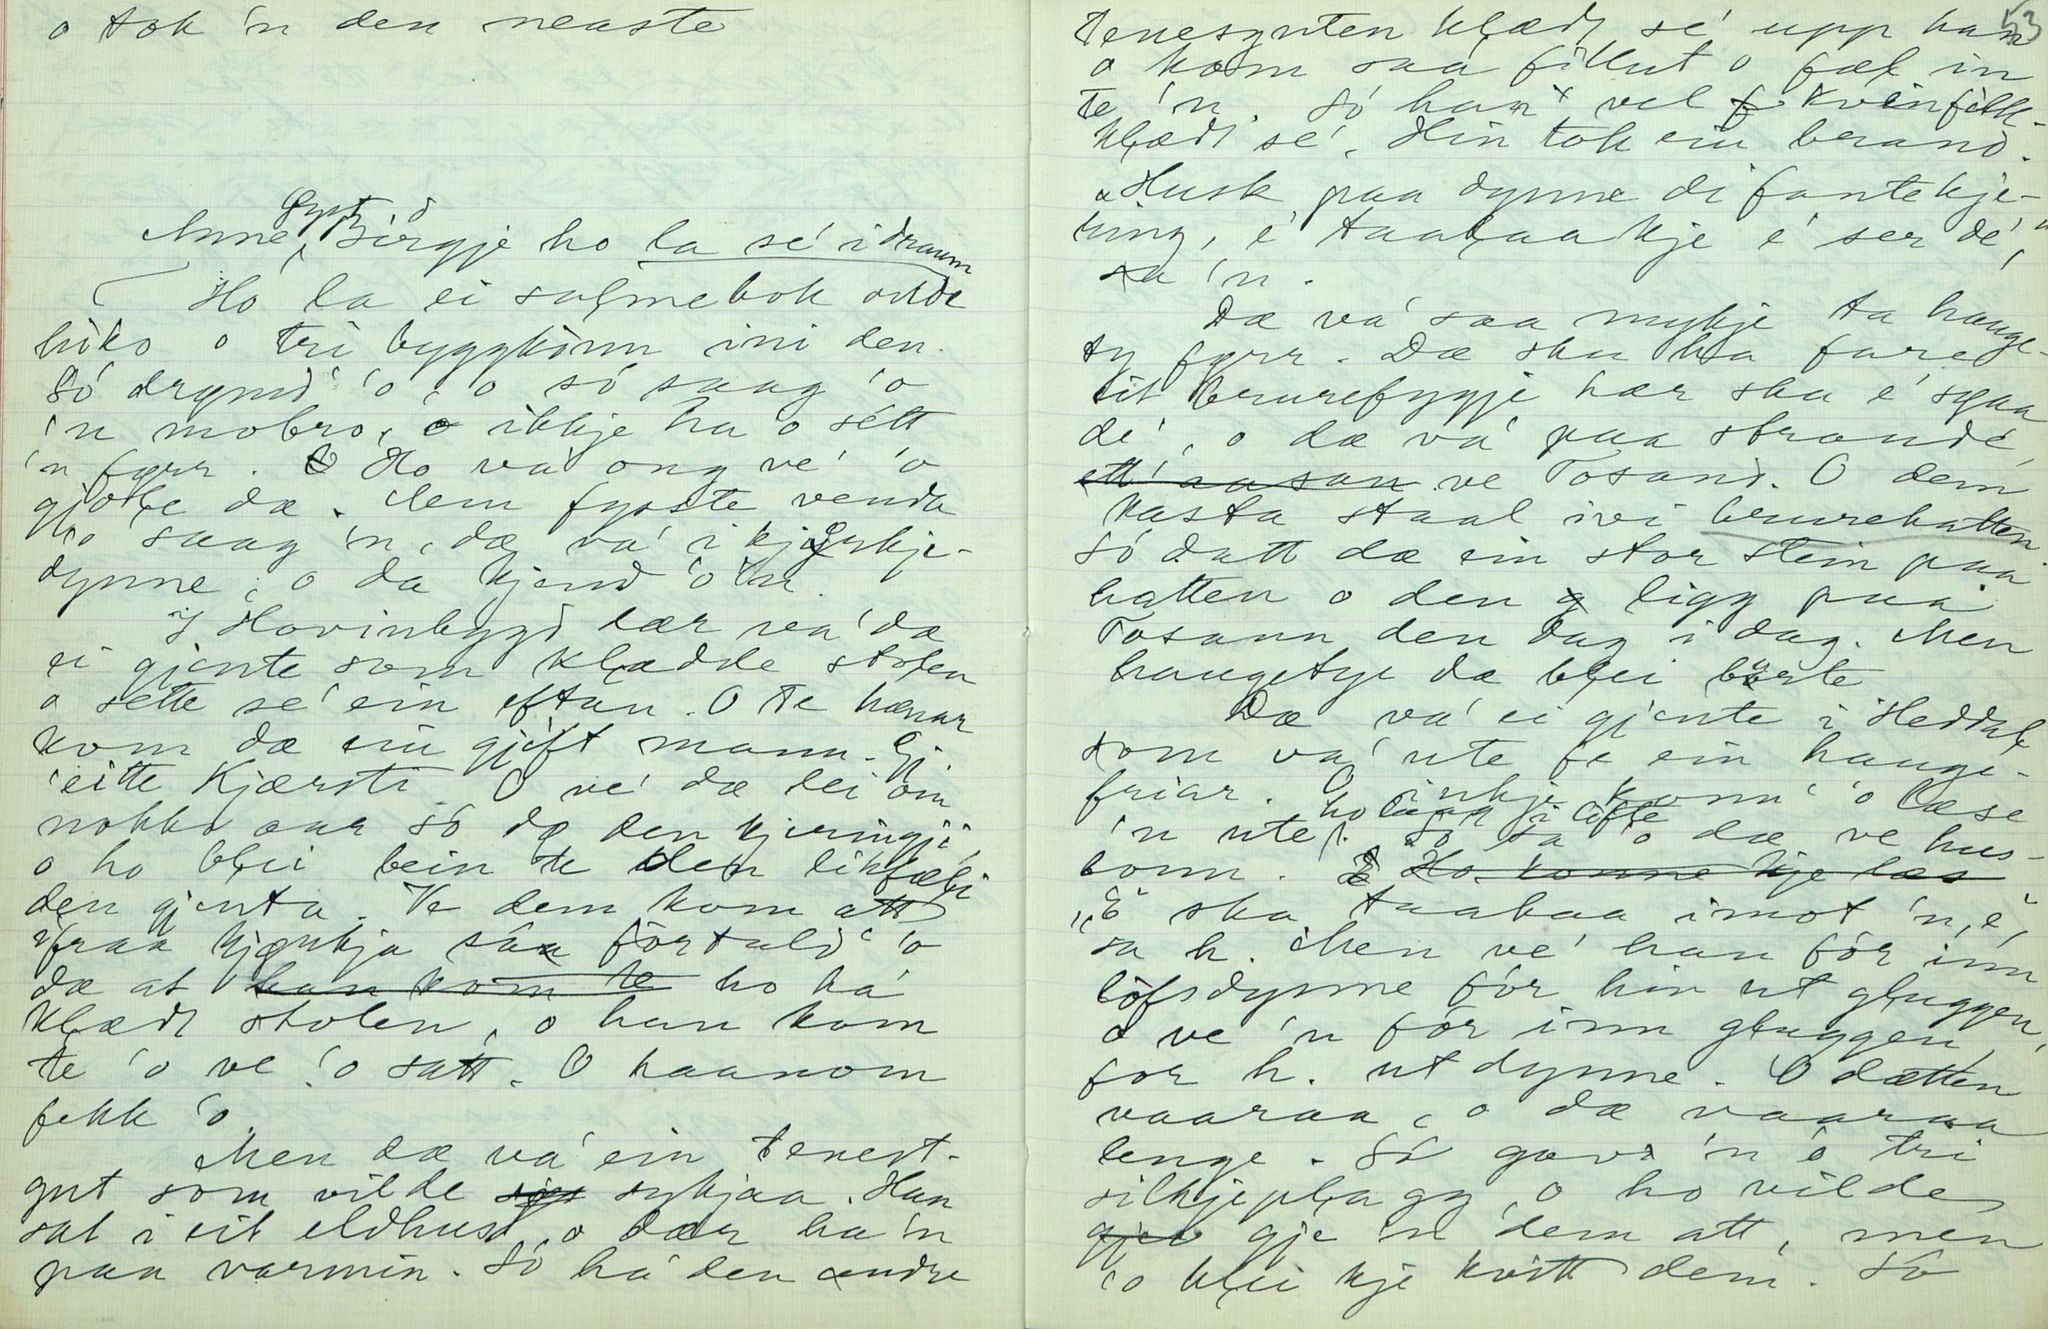 o tok 'n den neaste
fyst o
Anne, Birgje ho la sé i draum
Ho la ei salmebok onde
hiko o tri byggkonn ini den.
Só drøymd' 'o, o só saag 'o
'n mobro, o ikkje ha o sétt
'n fyrr. Ho va ong vé 'o
gjole dæ. Dem fyste venda
ho saag 'n, dæ va i kjørkje-
dynne, o da kjend 'o 'n.
I Hovinbygd dær va' dæ
ei gjente som klædde stolen
o sette sé ein eftan. O te hænar
kom dæ ein gjift mann. Gj.
'eitte Kjærsti. O vé dæ lei om
nokko aar só dø den kjeringji,
o ho blei bein te den likfæli
den gjenta. Ve dem kom att
ifraa kjørkja saa fortald' 'o
dæ at han kom te ho há
klædt stolen, o han kom
te 'o ve 'o satt. O haanom
fekk 'o.
Men dæ va' ein tenest-
gut som vilde sykjaa. Han
sat i eit eldhus, o dær ha 'n
paa varmin. Só há den andre
53
tenesguten klædt sé upp han
o kom saa fillut o fæl in
te 'n. Só han vel f kvinfolk-
klædt sé. Hin tok ein brand.
"Husk paa dynne di fantekje-
ring, é taalaa kje é ser dé,"
sa 'n.
Dæ va' saa mykje ta hauge-
ty fyrr. Dæ sku ha fare
eit brurefygje hær ska é sjaa
dé, o dæ va' paa strondé,
ett aasan ve Tosand. O dem
kasta staal ivi brurehatten
só datt dæ ein stor stein paa
hatten o den g ligg paa
Tosann den dag i dag. Men
haugetye dæ blei borte
Dæ va' ei gjente i Heddal
som va' ute fe ein hauge-
friar. O inkje konn' 'o læse
ho laag i lofte
'n ute. Só sa 'o dæ ve hus-
bonn. Ho konne kje læs
"É ska taalaa imot 'n, é,
sa h. Men vé han fór inn
lofsdynne fór hin ut gluggen,
o ve 'n fór inn gluggen,
for h. ut dynne. O dætten
vaaraa, o dæ vaaraa
lenge. Só gav 'n ó tri
silkjeplagg, o ho vilde
gjev gje 'n dem att, men
'o blei kje kvitt dem. Só